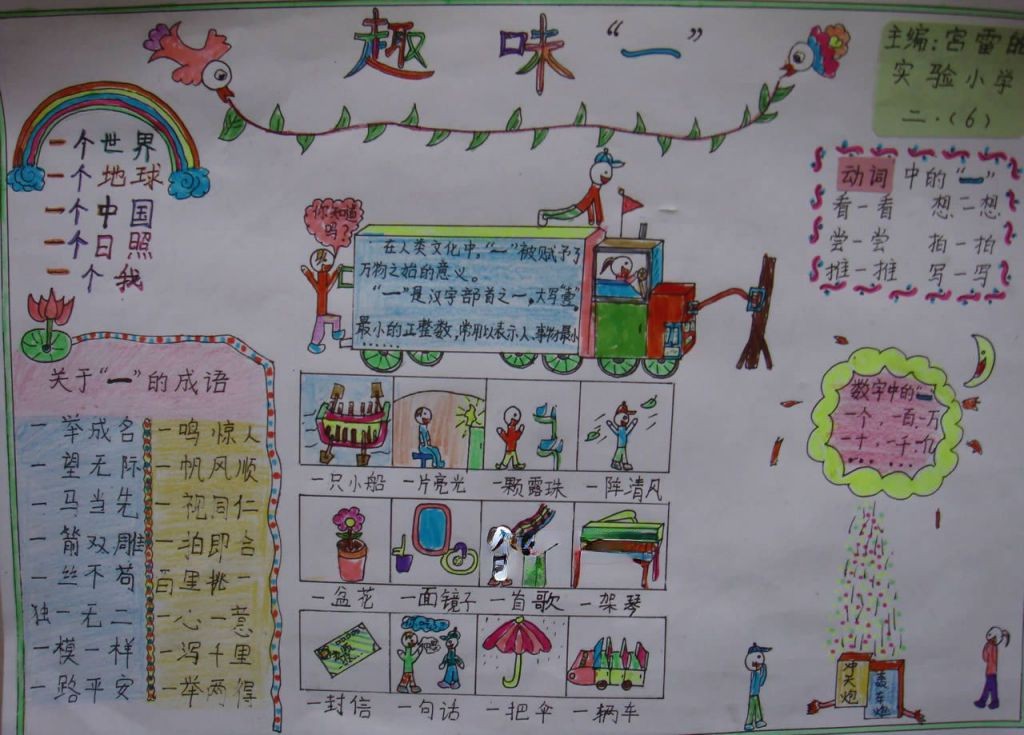 趣味“一”
主编:宫雷
实验小学
二.(6)
一个世界
一个地球
一个中国
一个日照
一个我
你知道吗?
在人类文化中,“一”被赋予了
万物之始的意义。
“一”是汉字部首之一,大写“壹”,
最小的正整数,常用以表示人、事物最小
......
动词中的“一”
看一看 想一想
尝一尝 拍一拍
推一推 写一写
关于“一”的成语
一举成名 一鸣惊人
一望无际 一帆风顺
一马当先 一视同仁
一箭双雕 一拍即合
一丝不苟 百里挑一
独一无二 一心一意
一模一样 一泻千里
一路平安 一举两得
一只小船 一片亮光 一颗露珠 一阵清风
一盆花 一面镜子 一首歌 一架琴
一封信 一句话 一把伞 一辆车
数字中的“一”
一个,一百,一万
一十,一千,一亿
......
冲天炮